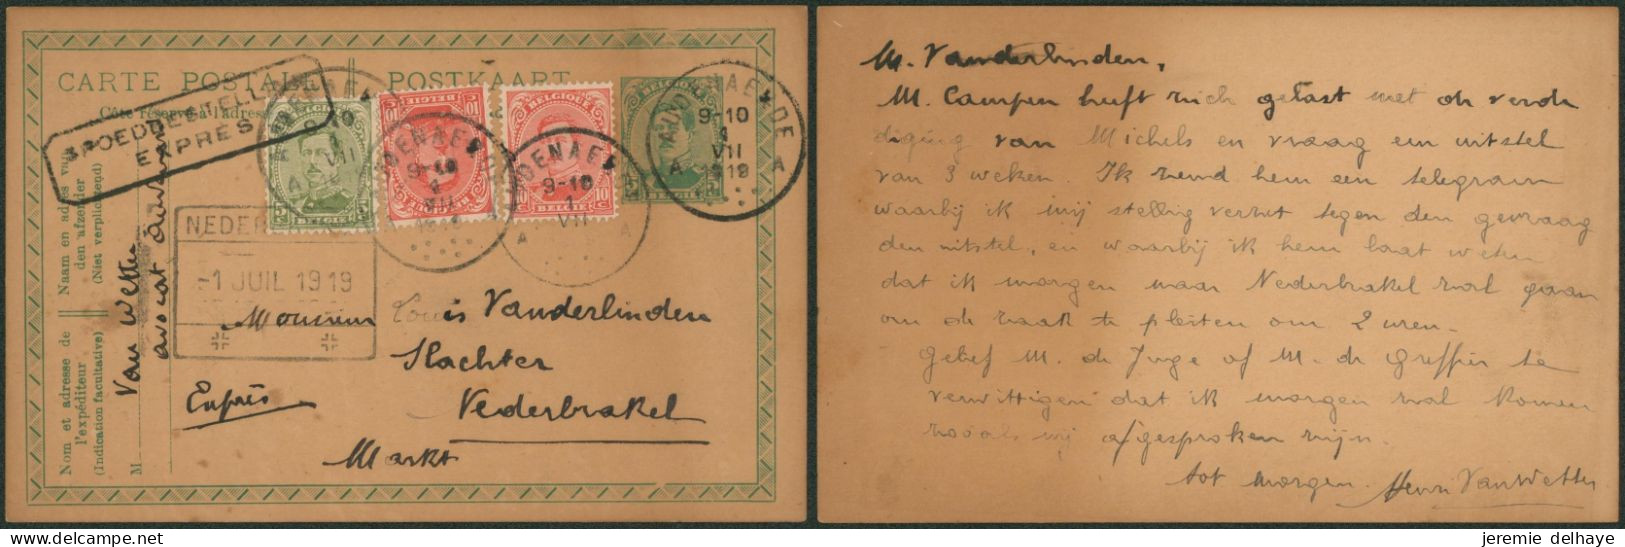 CARTE POSTALE POSTKAART
Côté réservé à l'adresse
SPOEDBESTELLING
EXPRES
BELGIQUE
BELGIE
AUDENAERDE
9-10
1
VII
1919
A A
NEDER
-1 JUIL 1919
Naam en adres van
den afzender
(Niet verplichtend)
Nom et adresse de
l'expéditeur
(Indication facultative)
M
Van Wetter
avocat Audenarde
Monsieur Louis Vanderlinden
Slachter
Exprès Nederbrakel
Markt
M. Vanderlinden,
M. Campen heeft zich gelast met de verde
diging van Michels en vraag een uitstel
van 3 weken. Ik zend hem een telegram
waarbij ik mij stellig verzet tegen den gevraag
den uitstel, en waarbij ik hem laat weten
dat ik morgen naar Nederbrakel zal gaan
om de zaak te pleiten om 2 uren.
Gelief M. de Juge of M. de Greffier te
verwittigen dat ik morgen zal komen
zooals wij afgesproken zijn.
tot morgen. Henri VanWetter
jeremie delhaye